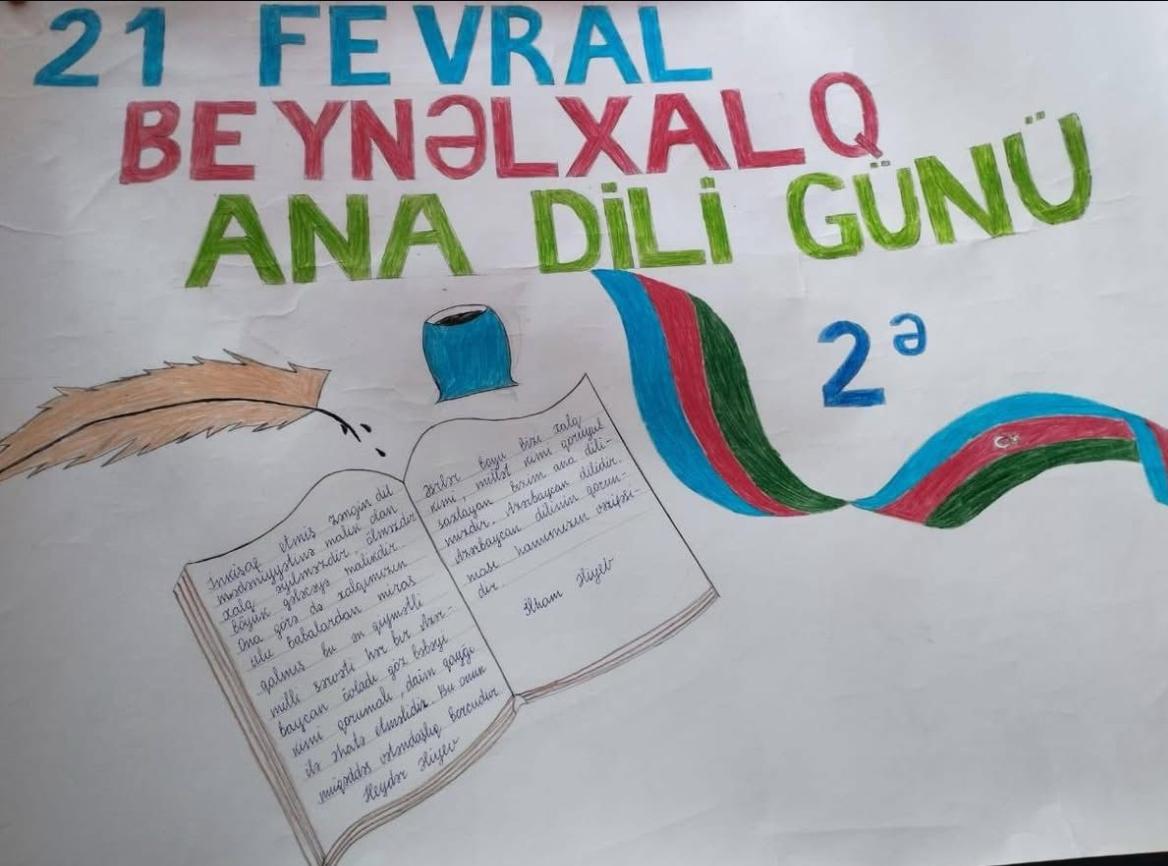 21 FEVRAL
BEYNƏLXALQ
ANA DİLİ GÜNÜ
2ə
İnkişaf etmiş zəngin dil
mədəniyyətinə malik olan
xalq əyilməzdir, ölməzdir
böyük gələcəyə malikdir.
Ona görə də xalqımızın
ulu babalardan miras
qalmış bu ən qiymətli
milli sərvəti hər bir Azər-
baycan övladı göz bəbəyi
kimi qorumalı, daim qayğı
ilə əhatə etməlidir. Bu onun
müqəddəs vətəndaşlıq borcudur.
Heydər Əliyev
Əsrlər boyu bizi xalq
kimi, millət kimi qoruyub
saxlayan bizim ana dili-
mizdir. Azərbaycan dilidir.
Azərbaycan dilinin qorun-
ması hamımızın vəzifəsi-
dir.
İlham Əliyev